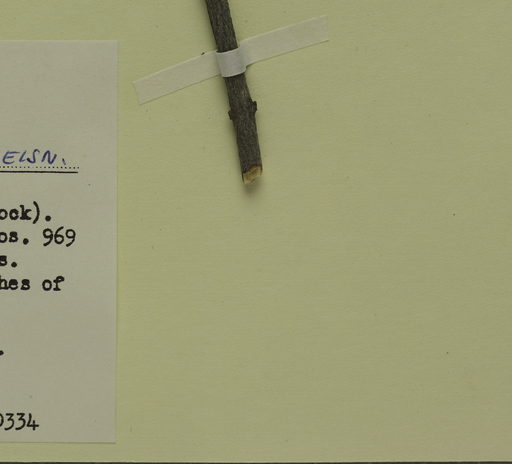 ELSN.
ock).
os. 969
s.
hes of
0334